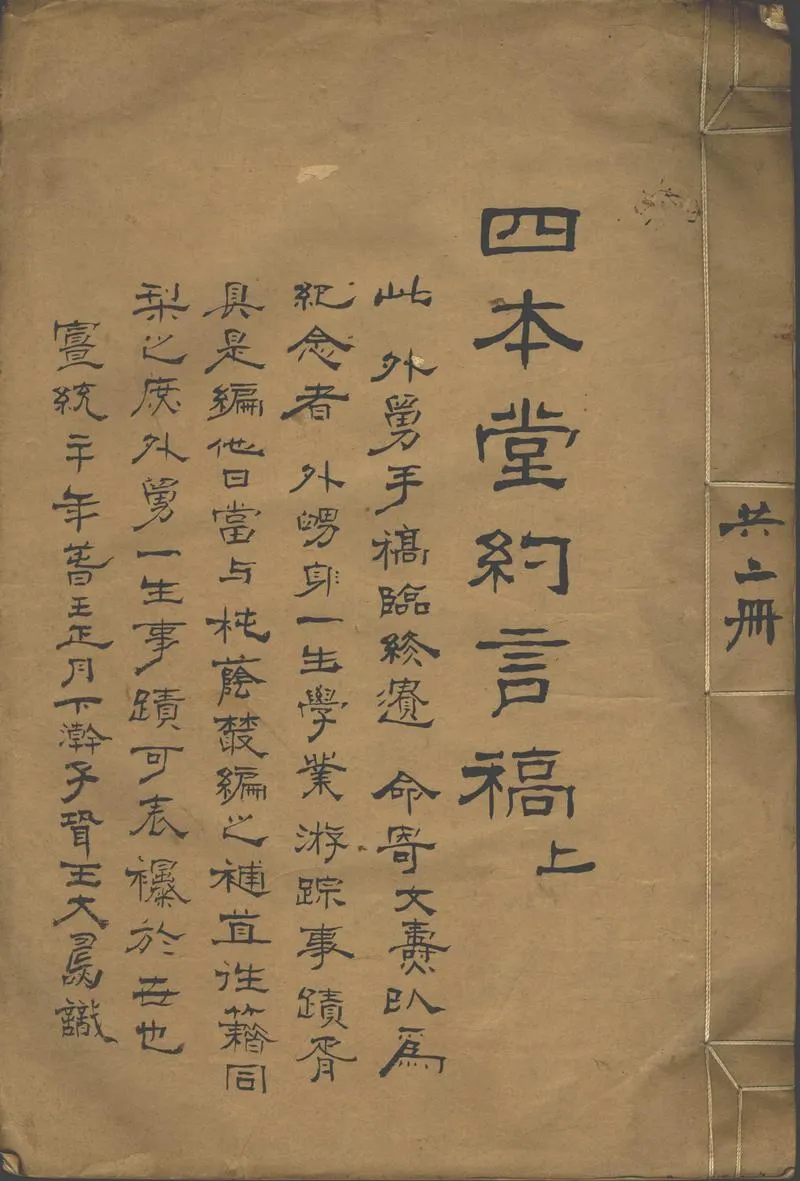 共二冊
四本堂約言稿 上
此 外舅手稿臨終遺 命寄文燾以爲
紀念者 外 一生學業游踪事蹟胥
具是編他日當与杶蔭叢編之補苴往籍同
梨之庶外舅一生事蹟可表襮於世也
宣統 年 正月下澣子壻王大 識